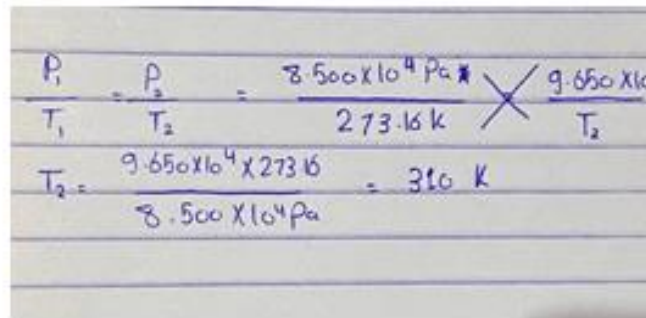 P₁/T₁ = P₂/T₂ = 8.500 X 10⁴ Pa / 273.16 K X 9.650 X 10 / T₂
T₂ = 9.650 X 10⁴ X 273 16 / 8.500 X 10⁴ Pa = 310 K